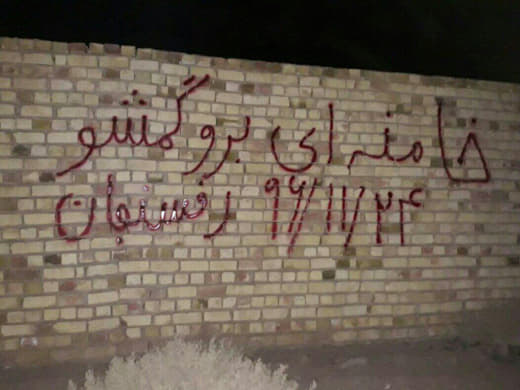 خامنه ای برو گمشو
۹۶/۱۱/۲۴ رفسنجان